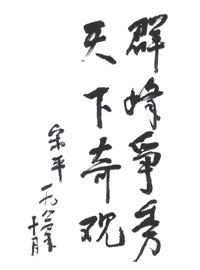 群峰争秀
天下奇观
宋平 一九八六年
十月